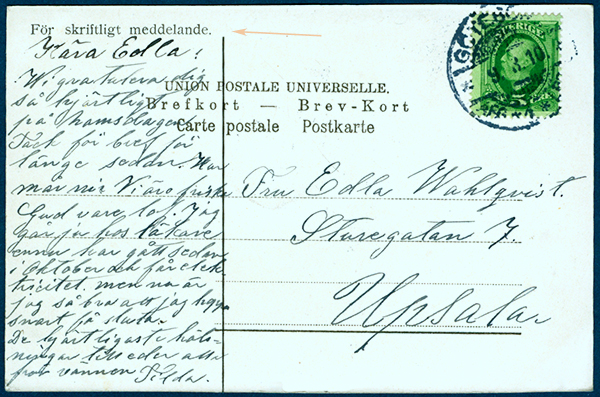 För skriftligt meddelande.
Kära Edla!
Vi gratulera dig
så hjärtligt
på namsdagen
Tack för bref för
länge sedan. Hur
mår ni? Vi äro friska
Gud vare lof. Jag
går ju hos läkare
ännu har gått sedan
i Oktober och får elek
tricitet. men nu är
jag så bra att jag
snart få sluta.
De hjärtligaste häls-
ningar till eder alla
från vännen Hilda.
UNION POSTALE UNIVERSELLE.
Brefkort — Brev-Kort
Carte postale Postkarte
SVERIGE
Fru Edla Wahlqvist.
Sturegatan 7.
Upsala.